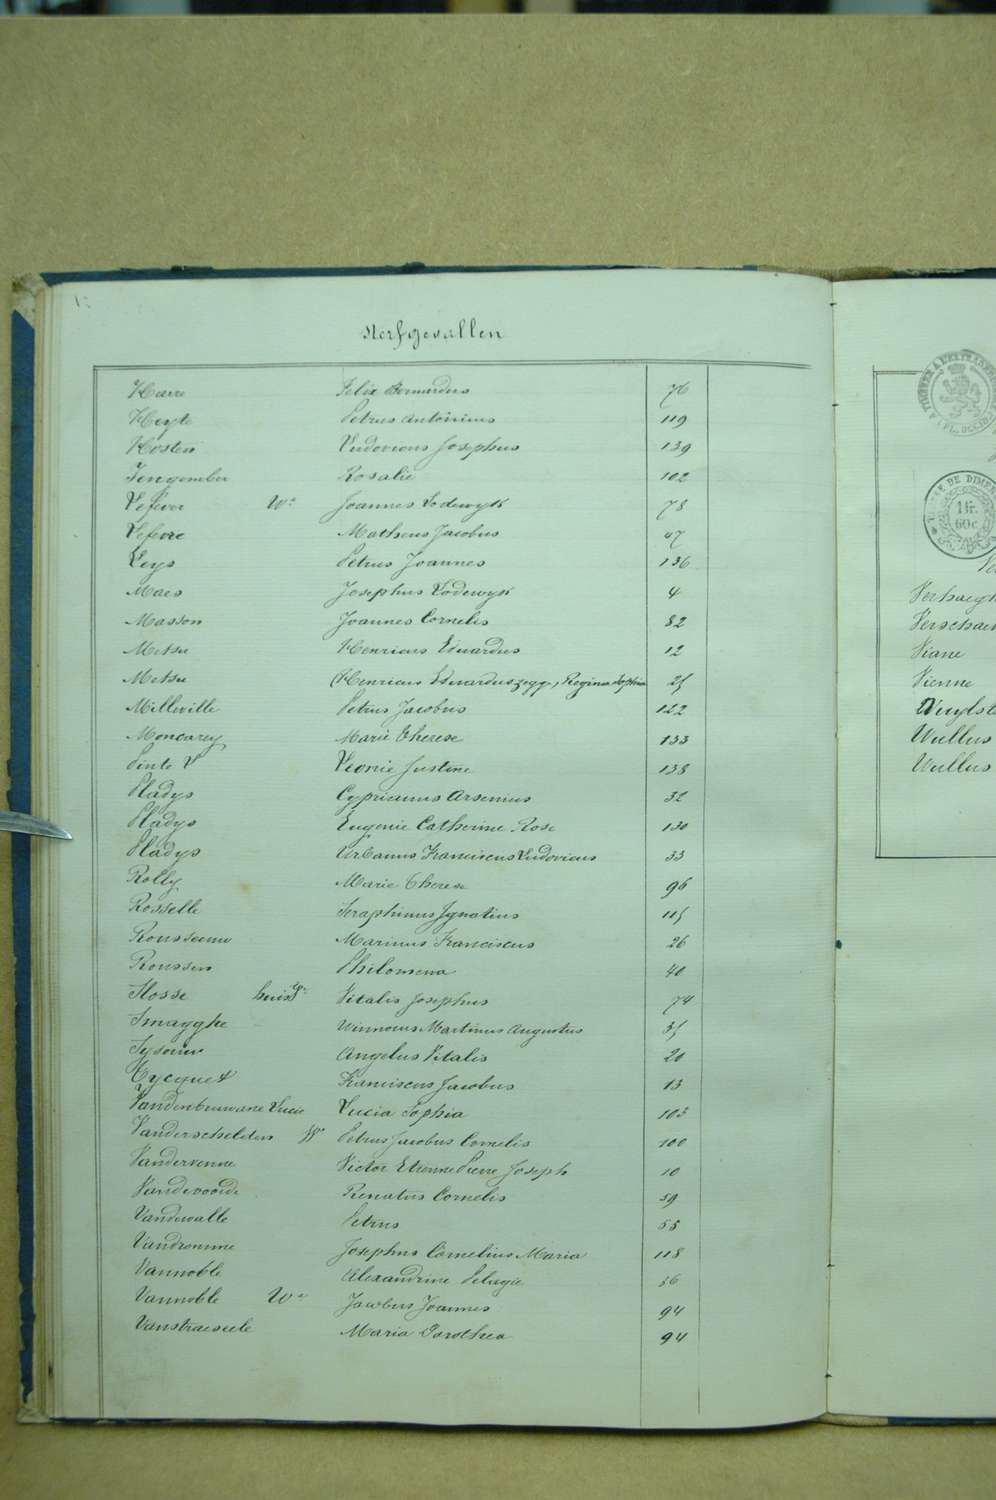 Sterfgevallen
Harre Felix Bernardus 76
Heyte Petrus Antonius 119
Hosten Ludovicus Josephus 139
Jengember Rosalie 102
Lefever We Joannes Lodewyk 78
Lefevre Matheus Jacobus 47
Leys Petrus Joannes 136
Maes Josephus Lodewyk 4
Masson Joannes Cornelis 82
Metsu Henricus Eduardus 12
Metsu Henricus Eduardus zegge, Regina Sophia 25
Milleville Petrus Jacobus 122
Moncarey Marie Therese 133
Pinte V Leonie Justine 138
Pladys Cyprianus Arsenius 32
Pladys Eugenie Catherine Rose 130
Pladys Urbanus Franciscus Ludovicus 33
Rolly Marie Therese 96
Rosselle Seraphinus Ignatius 115
Rousseeuw Marinus Franciscus 26
Roussen Philomena 40
Slosse huisv Vitalis Josephus 74
Smagghe Winnocus Martinus Augustus 35
Sysouw Angelus Vitalis 20
Tycquet Franciscus Jacobus 13
Vandenbeuwane Lucie Lucia Sophia 103
Vanderschelden We Petrus Jacobus Cornelis 100
Vandervenne Victor Etienne Pierre Joseph 10
Vandevoorde Renatus Cornelis 59
Vandewalle Petrus 55
Vandromme Josephus Cornelius Maria 118
Vannoble Alexandrine Pelagie 56
Vannoble We Jacobus Joannes 94
Vanstraeseele Maria Dorothea 94
TIMBRE A L'EXTRAORD
FL. OCCID.
TIMBRE DE DIMEN
1 fr.
60 c.
Verhaegh
Verschae
Viane
Vienne
Vuylst
Wullus
Wullus